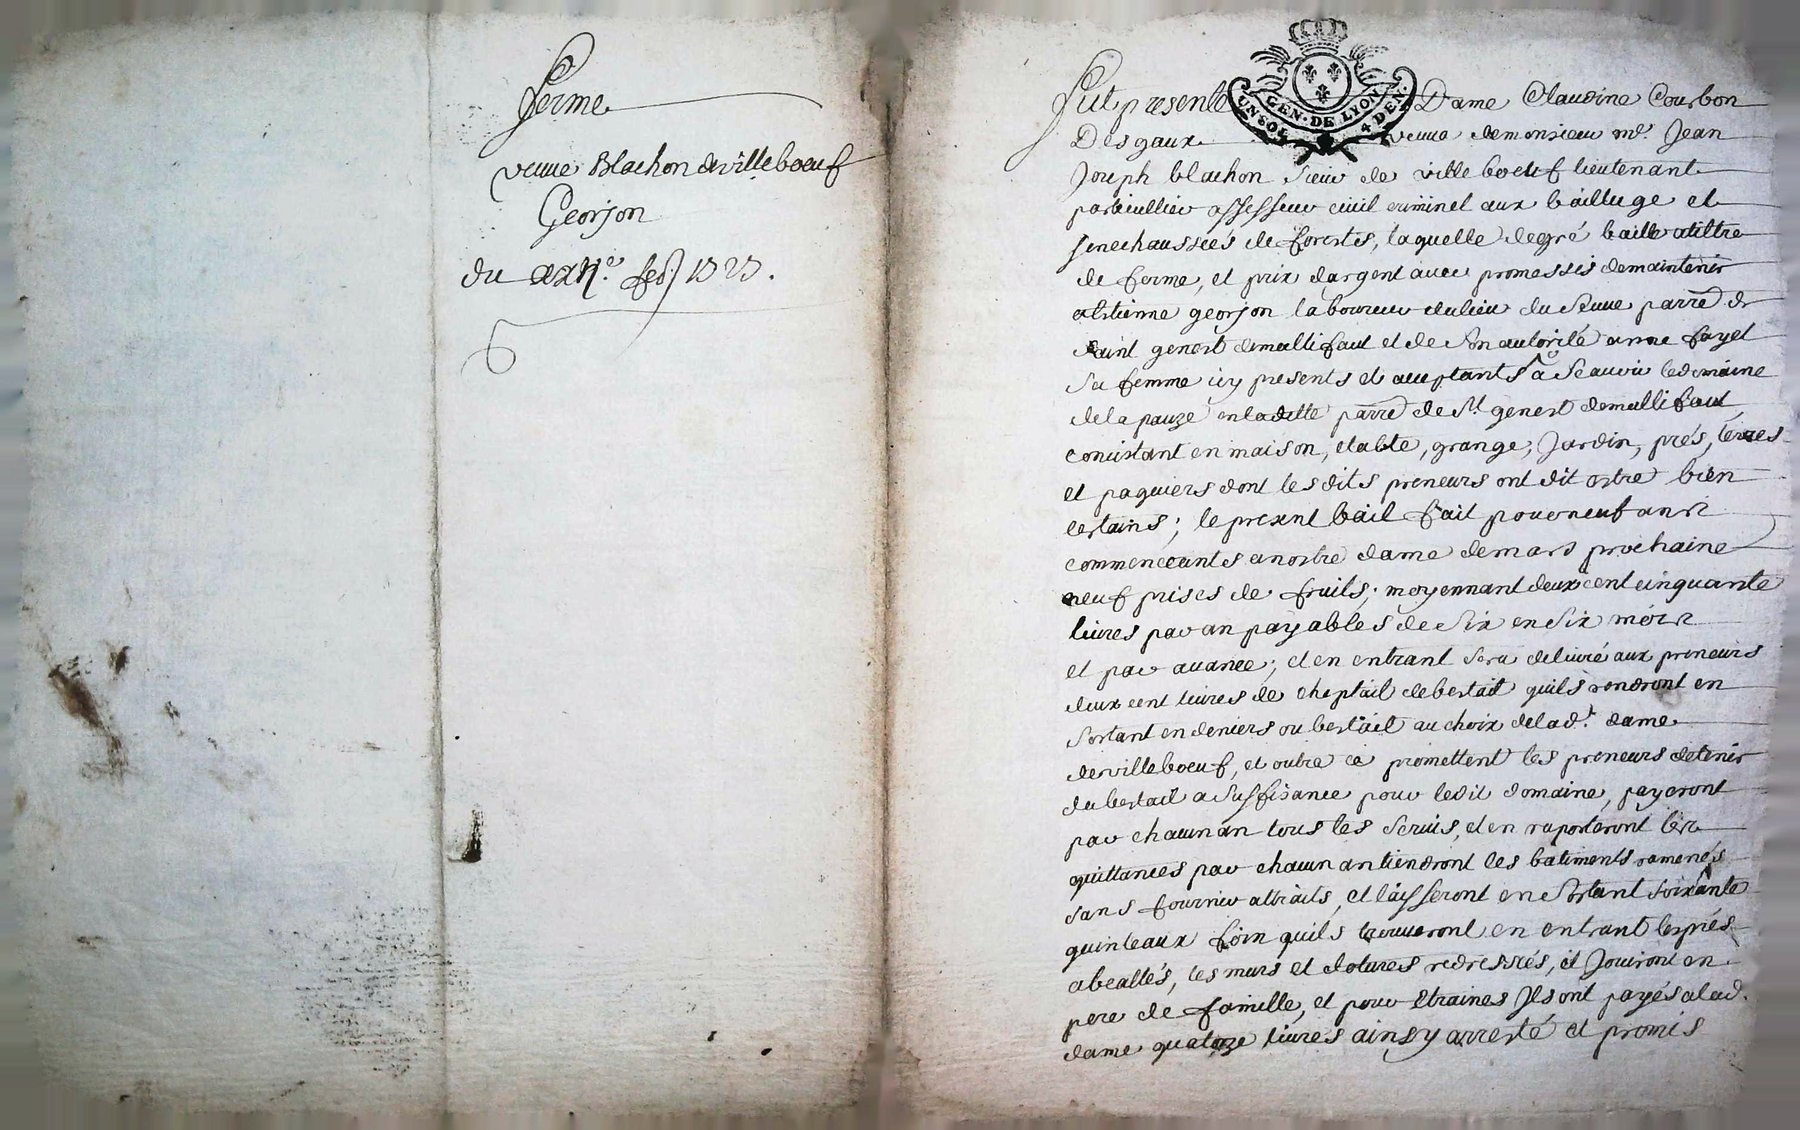 ferme
veuve Blachon de villeboeuf
Georjon
du
Fut presente Dame Claudine Courbon
GEN. DE LYON
UN SOL 4 DEN.
Desgaux veuve de monsieur mr. Jean
Joseph blachon sieur de ville boeuf lieutenant
particullier assesseur civil criminel aux bailliage et
senechaussées de forests, laquelle de gré baille a tiltre
de ferme, et prix dargent avec promesses de maintenir
a Estienne georjon laboureur du lieu du parre de
saint genest demallifaut et de son autorité anne fayel
sa femme icy presents et acceptants a scavoir le domaine
de la pauze en laditte parre de st genest demallifaut
consistant en maison, etable, grange, Jardin, prés, terres
et paquiers dont lesdits preneurs ont dit estre bien
certains; le present bail fait pour neuf ans
commenceants a nostre dame de mars prochaine
neuf prises de fruits; moyennant deux cent cinquante
livres par an payables de six en six mois
et par avance; et en entrant sera delivré aux preneurs
deux cent livres de cheptail de bestail quils rendront en
sortant en deniers ou bestail au choix de lad. dame
de villeboeuf, et outre ce promettent les preneurs de tenir
du bestail a suffisance pour ledit domaine, payeront
par chacun an tous les servis, et en raporteront les
quittances par chacun an tiendront les batiments ramenés
sans fournir attraits, et laisseront en sortant soixante
quinteaux foin quils trouveront en entrant les prés
abeallés, les murs et clotures redressés, et Jouiront en
pere de famille, et pour etraines Ils ont payés a lad.
dame quatoze livres ainsy arresté et promis